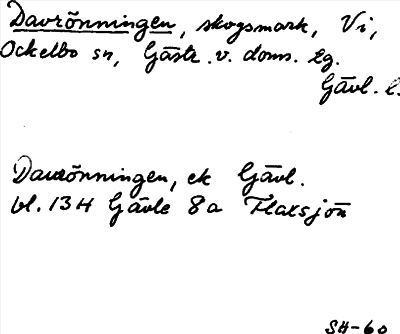 Davrönningen, skogsmark, Vi,
Ockelbo sn, Gästr. v. doms. lg.
Gävl. l.
Davrönningen, ek Gävl.
bl. 13H Gävle 8a Flaksjön
SH-60